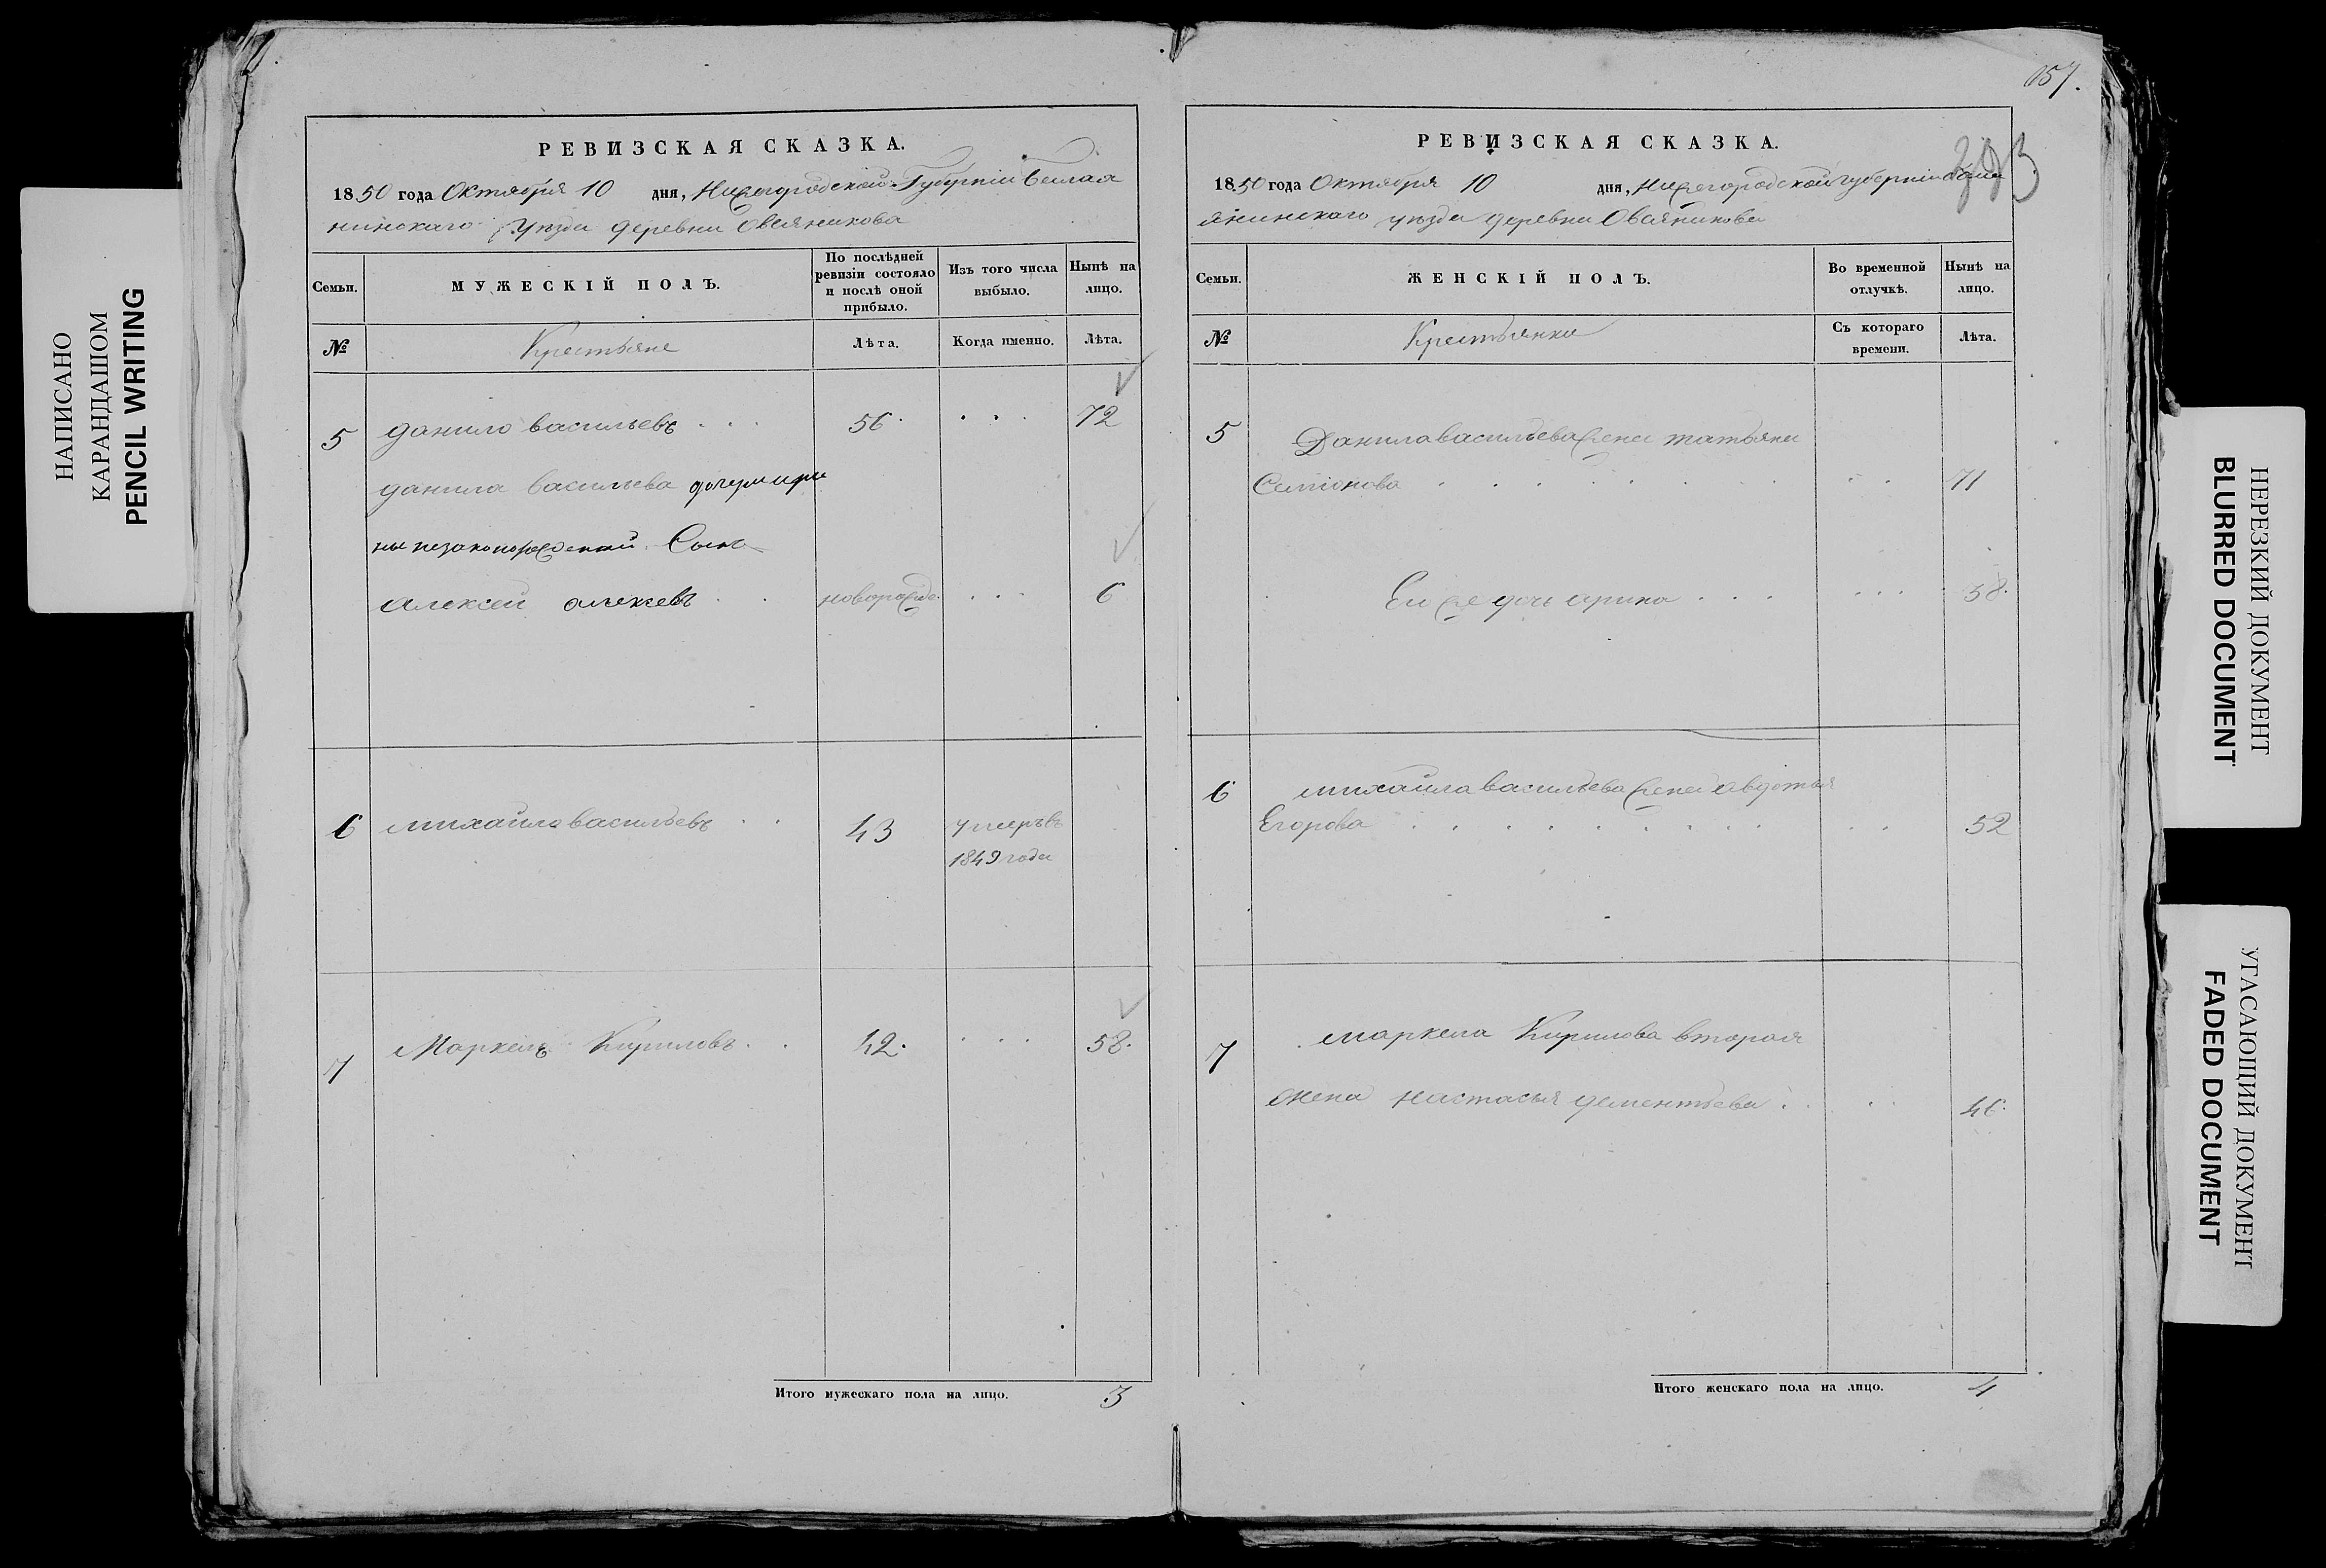 НАПИСАНО
КАРАНДАШОМ
PENCIL WRITING
РЕВИЗСКАЯ СКАЗКА.
1850 года Октября 10 дня, Нижегородской Губерніи
нинскаго уезда деревни Овсяникова
Семьи.
МУЖЕСКІЙ ПОЛЪ.
По послѣдней ревизіи состояло и послѣ оной прибыло.
Изъ того числа выбыло.
Нынѣ на лицо.
№
Крестьяне
Лѣта.
Когда именно.
Лѣта.
5 данило васильевъ 56 72
данила васильева дочери ири
ны незаконорожденной Сынъ
алексей алексевъ новорожде. 6
6 михайло васильевъ 43 умеръ въ
1849 года
7 Маркелъ Кириловъ 42 58
Итого мужескаго пола на лицо. 3
157.
РЕВИЗСКАЯ СКАЗКА.
1850 года Октября 10 дня, Нижегородской губерніи
янинскаго уезда деревни Овсяникова
Семьи.
ЖЕНСКІЙ ПОЛЪ.
Во временной отлучкѣ.
Нынѣ на лицо.
№
Крестьянки
Съ котораго времени.
Лѣта.
5 Данила васильева жена татьяна
Семіонова 71
Ево же дочь ирина 38
6 михайла васильева жена авдотья
Егорова 52
7 маркела Кирилова вторая
жена настасья дементьева 46
Итого женскаго пола на лицо. 4
НЕРЕЗКИЙ ДОКУМЕНТ
BLURRED DOCUMENT
УГАСАЮЩИЙ ДОКУМЕНТ
FADED DOCUMENT